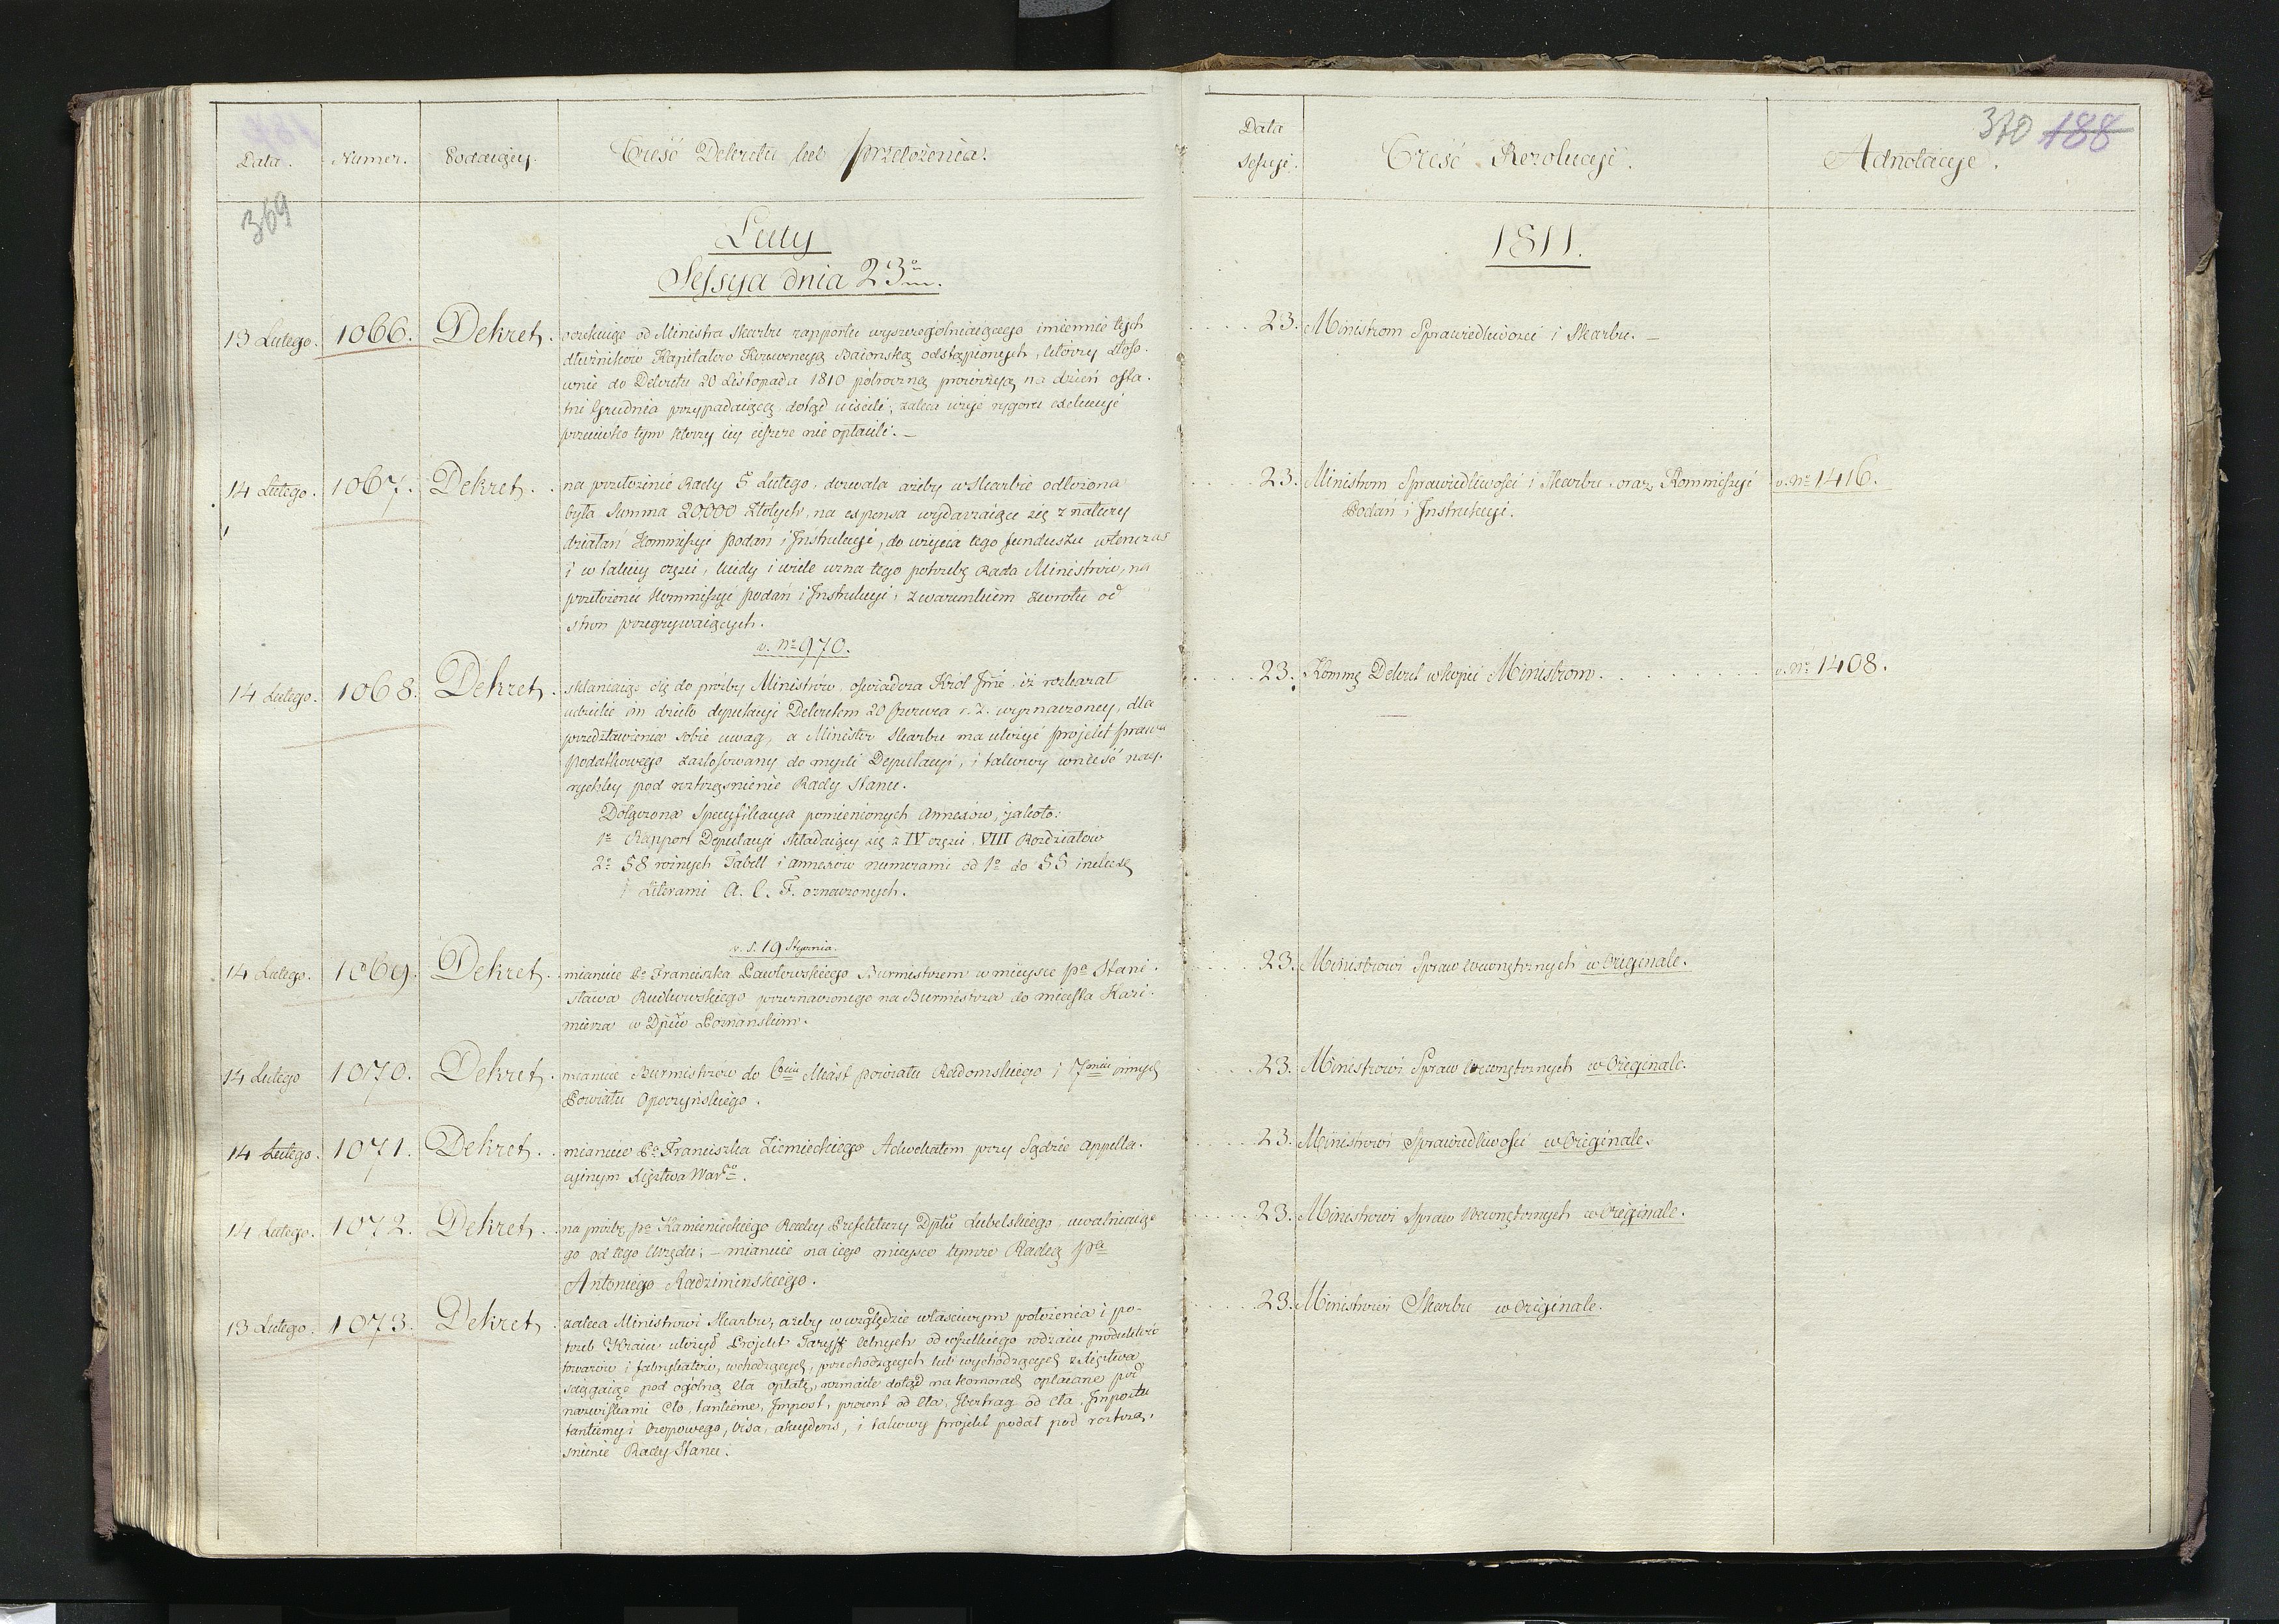 Data. Numer. Podaiący. Treść Dekretu lub przełożenia.
369
Luty
Sessya dnia 23º
13 Lutego. 1066. Dekret. oczekuiąc od Ministra Skarbu rapportu wyszczegolniaiącego imiennie tych
dłużników Kapitałow Konwencyą Baiońską odstąpionych, którzy stoso-
wnie do Dekretu 20 Listopada 1810 połroczną prowizyą na dzień osta-
tni Grudnia przypadaiącą dotąd uiscili; zaleca użyć rygoru exekucyi
przeciwko tym którzy iey ieszcze nie opłacili. —
14 Lutego. 1067. Dekret. na przełożenie Rady 5 Lutego, dozwala ażeby w Skarbie odłożona
była Summa 20,000 Złotych, na expensa wydarzaiące się z natury
działań Kommissyi podań i Instrukcyi, do użycia tego funduszu wtenczas
i w takiey częsci, kiedy i wiele uzna tego potrzebę Rada Ministrów, na
przełożenie Kommissyi podań i Instrukcyi, z warunkiem zwrotu od
stron przegrywaiących.
v. Nº 970.
14 Lutego. 1068. Dekret. skłaniaiąc się do prożby Ministrów, oswiadcza Król Jmć, iż rozkazał
udzielić im dzieło deputacyi Dekretem 20 Czerwca r. z. wyznaczoney, dla
przedstawienia sobie uwag, a Minister Skarbu ma ułożyć projekt prawa
podatkowego zastosowany do mysli Deputacyi, i takowy wnieść nay-
rychley pod roztrząsnienie Rady Stanu.
Dołączona Specyfikacya pomienionych annexów, jakoto:
1º Rapport Deputacyi składaiący się z IV częsci VIII Rozdziałow
2º 58 rożnych Tabell i annexów numerami od 1º do 55 inclusę
i Literami A. C. F. oznaczonych.
v. S. 19 Stycznia.
14 Lutego. 1069. Dekret. mianuie Pª Franciszka Pawłowskiego Burmistrzem w mieysce pª Stani-
sława Rutkowskiego przeznaczonego na Burmistrza do miasta Kazi-
mierza w Dptcie Poznańskim.
14 Lutego 1070. Dekret. mianuie Burmistrzów do 6ciu Miast powiatu Radomskiego i 7miu innych
Powiatu Opoczyńskiego.
14 Lutego. 1071. Dekret. mianuie Pª Franciszka Ziemieckiego Adwokatem przy Sądzie appella-
cyinym Xięstwa Wargo.
14 Lutego. 1072. Dekret. na prożbę pª Kamienieckiego Radcy Prefektury Dptu Lubelskiego, uwalniaiąc
go od tego Urzędu; — mianuie na iego mieysce tymże Radcą pª
Antoniego Radziminskiego.
13 Lutego. 1073. Dekret. zaleca Ministrowi Skarbu, ażeby w względzie własciwym położenia i po-
trzeb Kraiu ułożył Projekt Taryff celnych od wszelkiego rodzaiu produktów
towarów i fabrykatów, wchodzących, przechodzących lub wychodzących z Xięstwa
sciągaiąc pod ogólną cła opłatę, rozmaite dotąd na komorach opłacane pod
nazwiskami Cło, tantieme, Impost, procent od Cła, Ibertrag od Cła, Importu
tantiemy i Czopowego, Visa, akcydens, i takowy projekt podał pod roztrzą-
snienie Rady Stanu.
Data Sessyi. Treść Rezolucyi. Adnotacye.
370 188
1811.
23. Ministrom Sprawiedliwosci i Skarbu. —
23. Ministrom Sprawiedliwosci i Skarbu oraz Kommissyi v. Nº 1416.
Podań i Instrukcyi.
23. Kommę Dekret w kopii Ministrom. v. Nº 1408.
23. Ministrowi Spraw Wewnętrznych w Originale.
23. Ministrowi Spraw Wewnętrznych w Originale.
23. Ministrowi Sprawiedliwosci w Originale.
23. Ministrowi Spraw Wewnętrznych w Originale.
23. Ministrowi Skarbu w Originale.